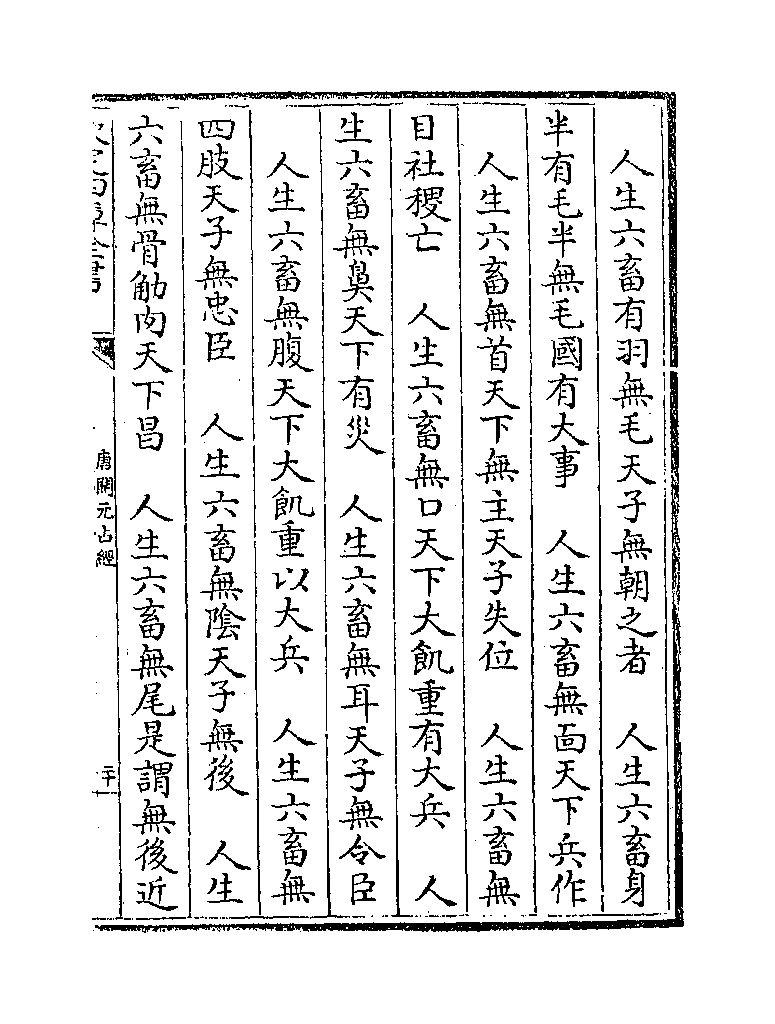 人生六畜有羽無毛天子無朝之者　人生六畜身
半有毛半無毛國有大事　人生六畜無面天下兵作
人生六畜無首天下無主天子失位　人生六畜無
目社稷亡　人生六畜無口天下大飢重有大兵　人
生六畜無鼻天下有災　人生六畜無耳天子無令臣
人生六畜無腹天下大飢重以大兵　人生六畜無
四肢天子無忠臣　人生六畜無陰天子無後　人生
六畜無骨觔肉天下昌　人生六畜無尾是謂無後近
欽定四庫全書
唐開元占經
二十